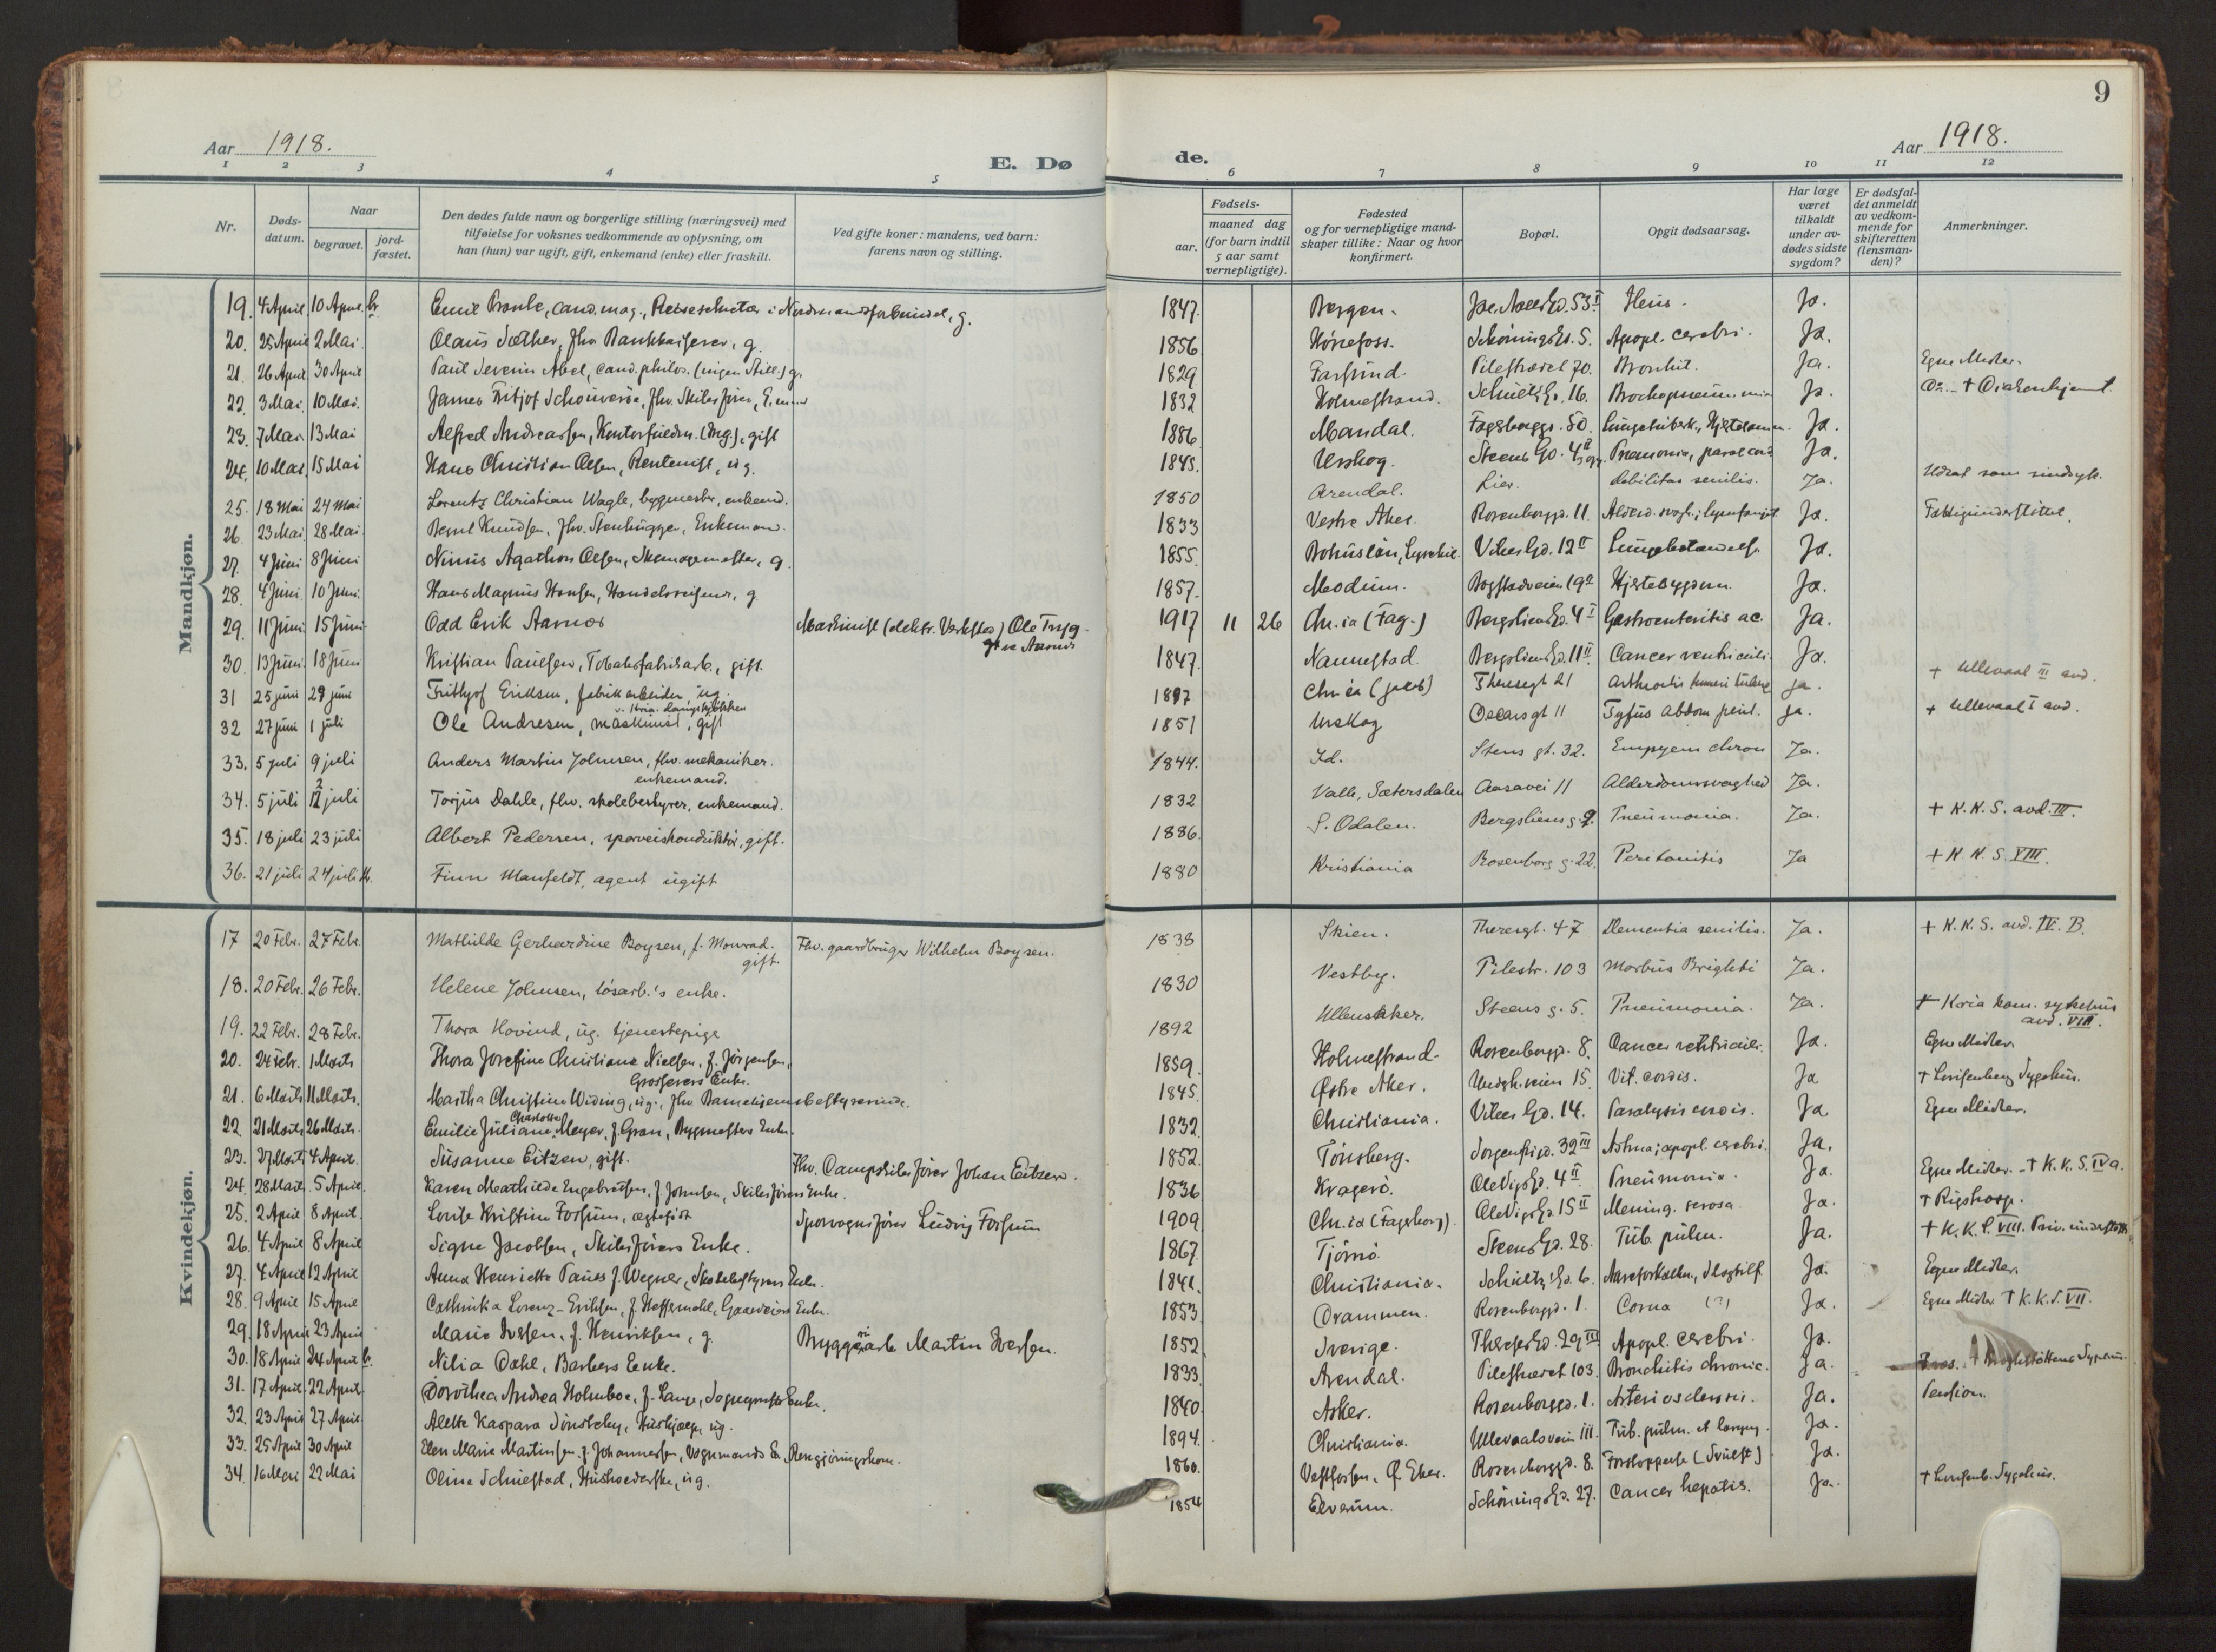 9
Aar 1918.
E. Dø
de.
Aar 1918.
1 2 3 4 5 6 7 8 9 10 11 12
Nr.
Døds-
datum.
Naar
begravet.
jord-
fæstet.
Den dødes fulde navn og borgerlige stilling (næringsvei) med
tilføielse for voksnes vedkommende av oplysning, om
han (hun) var ugift, gift, enkemand (enke) eller fraskilt.
Ved gifte koner: mandens, ved barn:
farens navn og stilling.
Fødsels-
aar.
maaned dag
(for barn indtil
5 aar samt
vernepligtige).
Fødested
og for vernepligtige mand-
skaper tillike: Naar og hvor
konfirmert.
Bopæl.
Opgit dødsaarsag.
Har læge
været
tilkaldt
under av-
dødes sidste
sygdom?
Er dødsfal-
det anmeldt
av vedkom-
mende for
skifteretten
(lensman-
den)?
Anmerkninger.
Mandkjøn.
19. 4 April 10 April br. Emil cand. mag., i g. 1847. Bergen. 53 I Ja.
20. 25 April 2 Mai. Olaus Sæther, fhv. Bankkasserer, g. 1856. Hønefoss. Schøningsgd. 5. Apopl. cerebri. Ja.
21. 26 April 30 April Paul Severin Abel, cand. philos. (ingen Still.) g. 1829. Farsund. Pilestrædet 70. Bronkit. Ja. Egne Midler.
22. 3 Mai 10 Mai. James Fritjof fhv. Skibsfører, 1832 Holmestrand. Schultz Gd. 16. Ja. Do. - +
23. 7 Mai 13 Mai Alfred Andreassen, gift 1886 Mandal. Fagerborggd. 50. Ja.
24. 10 Mai 15 Mai Hans Christian Olsen, Rentenist, ug. 1845. Urskog. Steens Gd. 4 II Pnemonia, Ja.
25. 18 Mai 24 Mai Lorentz Christian Wagle, bygmester, enkemd. 1850 Arendal. Lier. debilitas senilis. Ja. Udsat som sindsyk.
26. 23 Mai. 28 Mai. Bernt Knudsen, fhv. Stenhugger, Enkemand. 1833 Vestre Aker. Rosenborggd. 11. Ja. Fattigunderstøttet.
27. 4 Juni 8 Juni Nimis Agathon Olsen, Skomagermester, g. 1855. Bohuslän, Lysekil. Vibes Gd. 12 II Lungebetændelse Ja.
28. 4 Juni. 10 Juni. Hans Magnus Hansen, Handelsreisende, g. 1857. Modum. Bogstadveien 19 a Hjertesygdom. Ja.
29. 11 Juni 15 Juni Odd Erik Aarnes Maskinist (elektr. Verksted) Ole Tryg-
gve Aarnes 1917 11 26 Chr.ia (Fag.) Bergslien Gd. 4 I Gastroenteritis ac. Ja.
30. 13 Juni. 18 Juni Kristian Paulsen, Tobaksfabrikarb., gift. 1847. Nannestad. Bergslien Gd. 11 II. Cancer ventriculi. Ja.
31 25 juni 29 juni Frithjof Eriksen, fabrikarbeider ug. 1897 Chr.ia (Jacob) Theresegt 21 Ja. + Ullevaal III avd.
32 27 juni 1 juli Ole Andresen, maskinist, gift 1851 Urskog Oscarsgt 11 Tyfus Abdom. Ja. + Ullevaal I avd.
33. 5 juli 9 juli Anders Martin Johnsen, fhv. mekaniker.
enkemand. 1844. Id. Stens gt. 32. Empyem chron Ja.
34. 5 juli 12 juli Torjus Dahle, fhv. skolebestyrer, enkemand. 1832 Valle, Sætersdalen Aasavei 11 Alderdomssvaghed Ja.
35. 18 juli 23 juli Albert Pedersen, sporveiskonduktør, gift. 1886. S. Odalen. Bergsliens g. 9. Pneumonia. Ja. + K. K. S. avd. III.
36. 21 juli 24 juli Finn Manfeldt, agent ugift 1880 Kristiania Rosenborg g. 22. Peritonitis Ja + K. K. S. VIII.
Kvindekjøn.
17 20 Febr. 27 Febr. Mathilde Gerhardine Boysen, f. Monrad.
gift. Fhv. gaardbruger Wilhelm Boysen. 1838 Skien. Theresgt. 47 Dementia senilis. Ja. + K. K. S. avd. IV. B.
18. 20 Febr. 26 Febr. Helene Johnsen, løsarb.'s enke. 1830 Vestby. Pilestr. 103 Morbus Brighti Ja.
19. 22 Febr. 28 Febr. Thora Hovind, ug. tjenestepige 1892 Ullensaker. Steens g. 5. Pneumonia. Ja. + Kria kom. sykehus
avd. VIII.
20. 24 Febr. 1 Marts Thora Josefine Christiane Nielsen, f. Jørgensen,
Grosserers Enke. 1859. Holmestrand. Rosenborggd. 8. Cancer ventriculi. Ja. Egne Midler.
21. 6 Marts 11 Marts. Martha Christine Widing, ug., fhv. Barnehjemsbestyrerinde. 1845. Østre Aker. 15. Vit. cordis. Ja + Lovisenberg Sygehus.
22. 21 Marts 26 Marts. Emilie Juliane Charlotte Meyer, f. Gran, Bygmesters Enke. 1832. Christiania. Vibes Gd. 14. Paralysis cordis. Ja Egne Midler.
23. 27 Marts 4 April. Susanne Eitzen, gift. Fhv. Dampskibsfører Johan Eitzen. 1852. Tønsberg. Sorgenfrigd. 32 III Asthma; apopl. cerebri. Ja.
24. 28 Marts. 5 April. Karen Mathilde Engebretsen, f. Johnsen, Skibsførers Enke. 1836 Kragerø. Ole Vigs Gd. 4 II. Pneumonia. Ja. Egne Midler. - + K. K. S. IV a.
25. 2 April 8 April. Louise Kristine Forsum, ægtefødt Sporvognsfører Ludvig Forsum 1909. Chr.ia (Fagerborg). Ole Vigs Gd 15 II Mening. serosa. Ja. + Rigshosp.
26. 4 April 8 April Signe Jacobsen, Skibsførers Enke. 1867. Tjømø. Steens Gd. 28. Tub. pulm. Ja. + K. K. S. VIII.
27. 4 April 12 April Anna Henriette Paus f. Wegner, Skolebestyrers Enke. 1841. Christiania. Schultz' Gd. 6. Ja. Egne Midler.
28. 9 April 15 April Cathinka Lorenz-Eriksen, f. Enke. 1853. Drammen. Rosenborggd. 1. Coma (?) Ja. Egne Midler. + K. K. S. VII.
29. 18 April 23 April Marie Iversen, f. Henriksen, g. Bryggeriarb. Martin Iversen. 1852. Sverige. Therese Gd. 29 III Apopl. cerebri. Ja.
30. 18 April 24 April b. Nilia Dahl, Barbers Enke. 1833. Arendal. Pilestrædet 103. Bronchitis chronic. Ja.
31. 17 April. 22 April. Dorothea Andrea Holmboe, f. Lange, Sogneprests Enke. 1840. Asker. Rosenborggd. 1. Arteriosclerosis. Ja. Pension.
32. 23 April 27 April. Alette Kaspara ug. 1894. Christiania. Ullevaalsvein 111. Tub. pulm. et laryng. Ja.
33. 25 April 30 April Elen Marie Martinsen f. Johannessen, Vognmands Enke, Rengjøringskone. 1860. Vestfossen, Ø. Eker. Rosenborggd. 8. Ja.
34. 16 Mai 22 Mai Oline ug. 1854 Elverum. Schøningsgd. 27. Cancer hepatis. Ja. + Lovisenb. Sygehus.